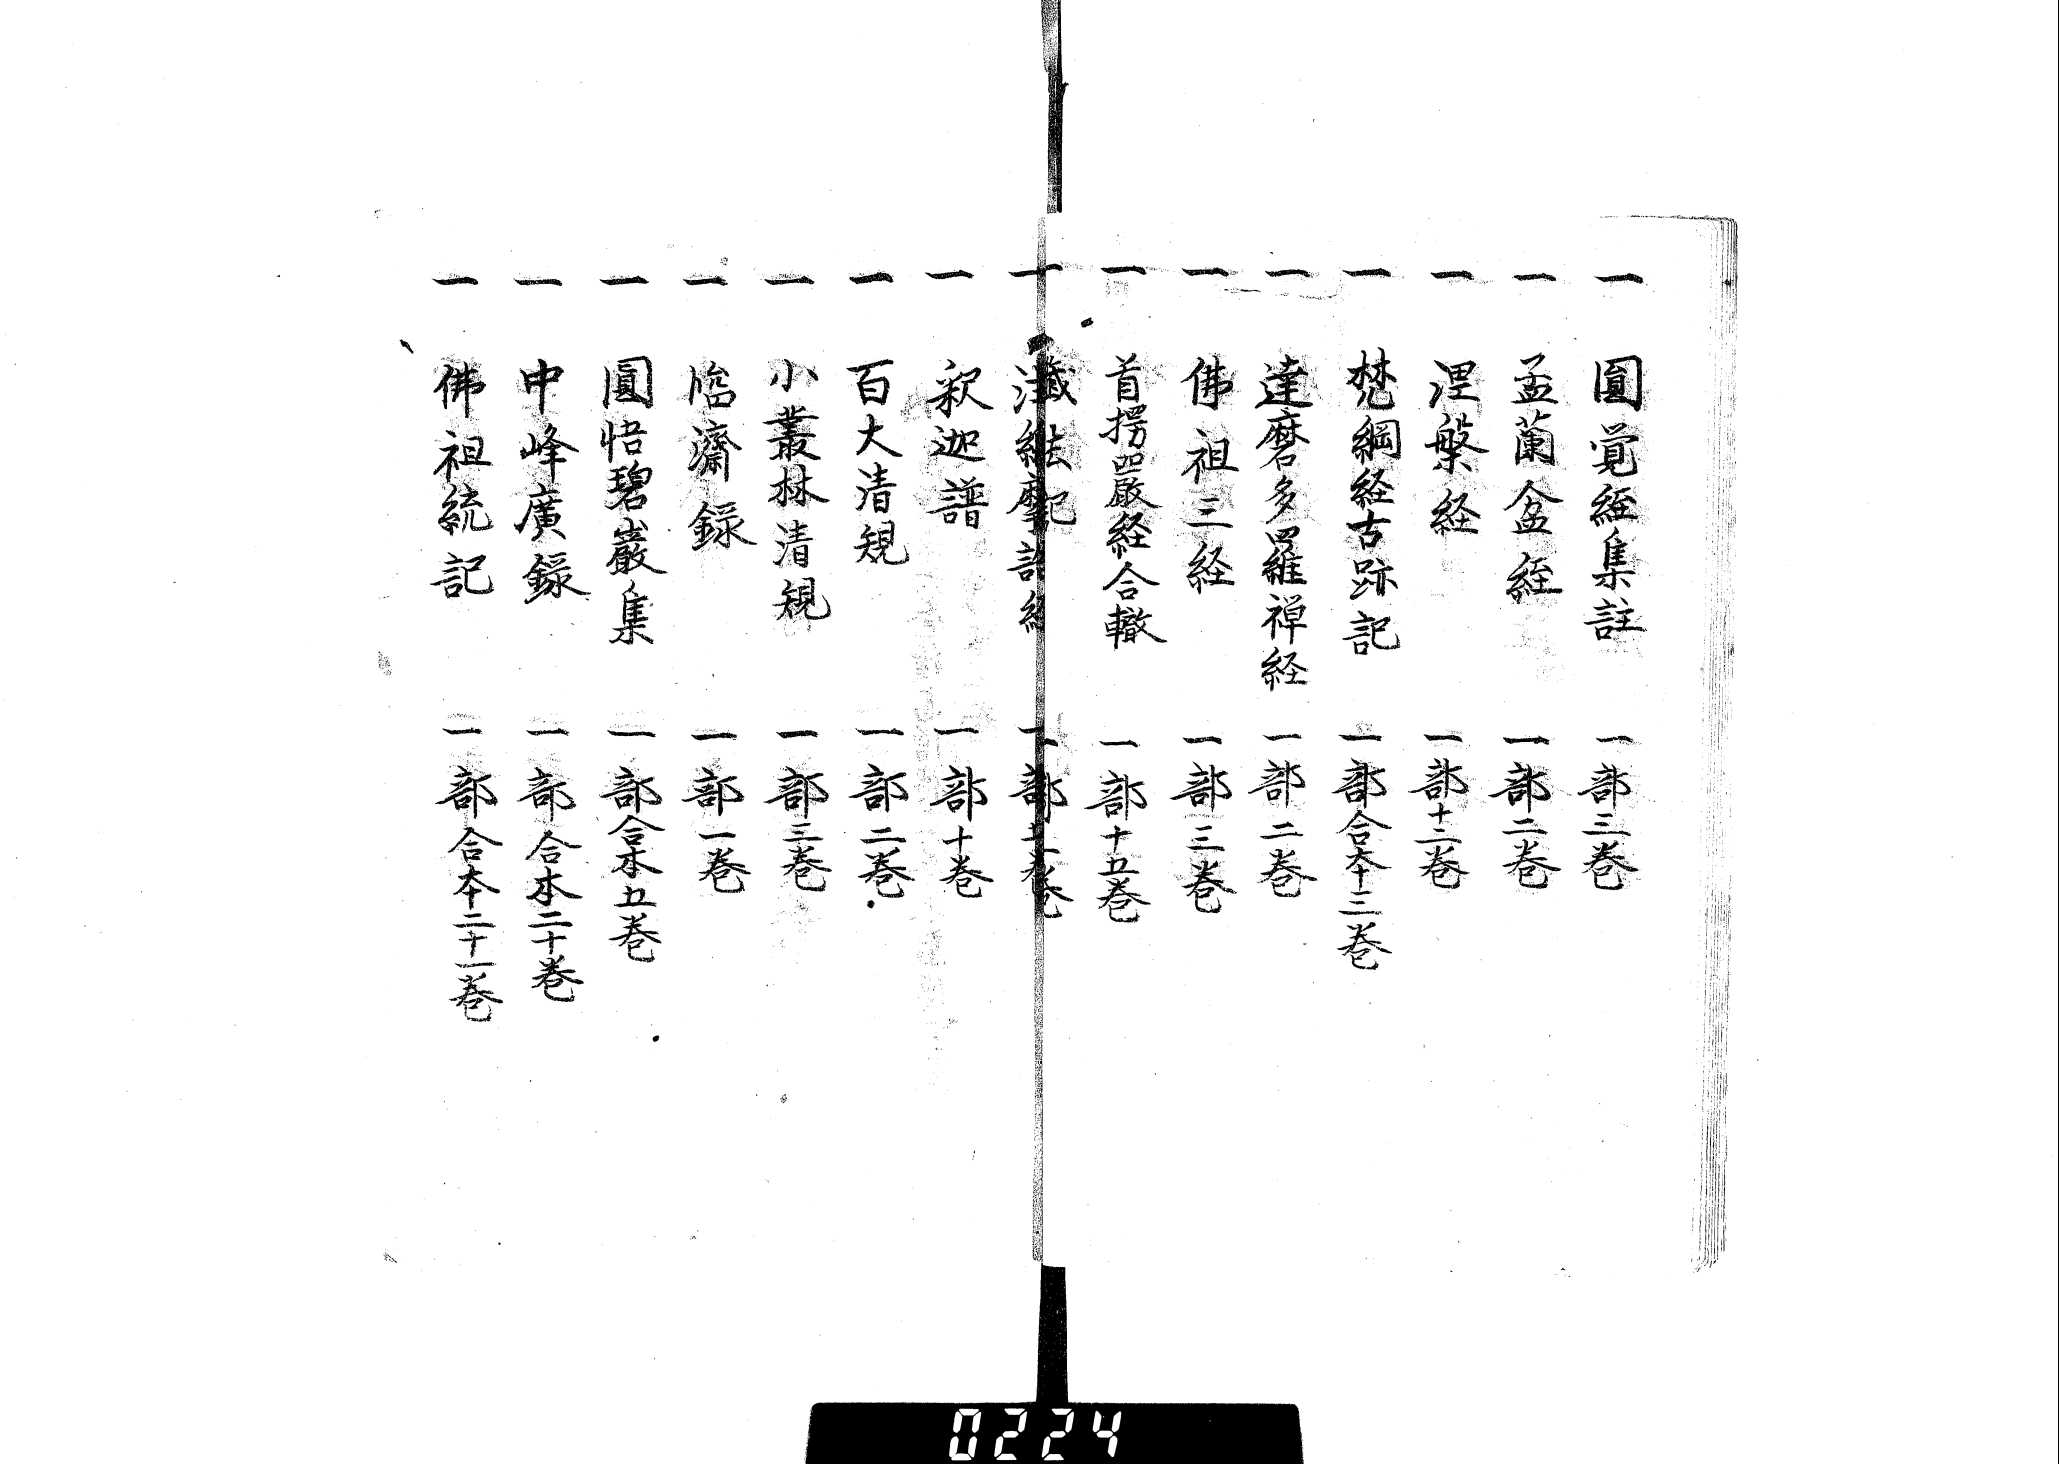 一 圓覚経集註 一部三巻
一 盂蘭盆経 一部二巻
一 涅槃経 一部十二巻
一 梵綱経古跡記 一部合本十三巻
一 達磨多羅禅経 一部二巻
一 佛祖三経 一部三巻
一 首楞嚴経合轍 一部十五巻
一 部 巻
一 釈迦譜 一部十巻
一 百大清規 一部二巻
一 小叢林清規 一部三巻
一 臨濟録 一部一巻
一 圓悟碧巖集 一部合本五巻
一 中峰廣録 一部合本二十巻
一 佛祖統記 一部合本二十一巻
0224